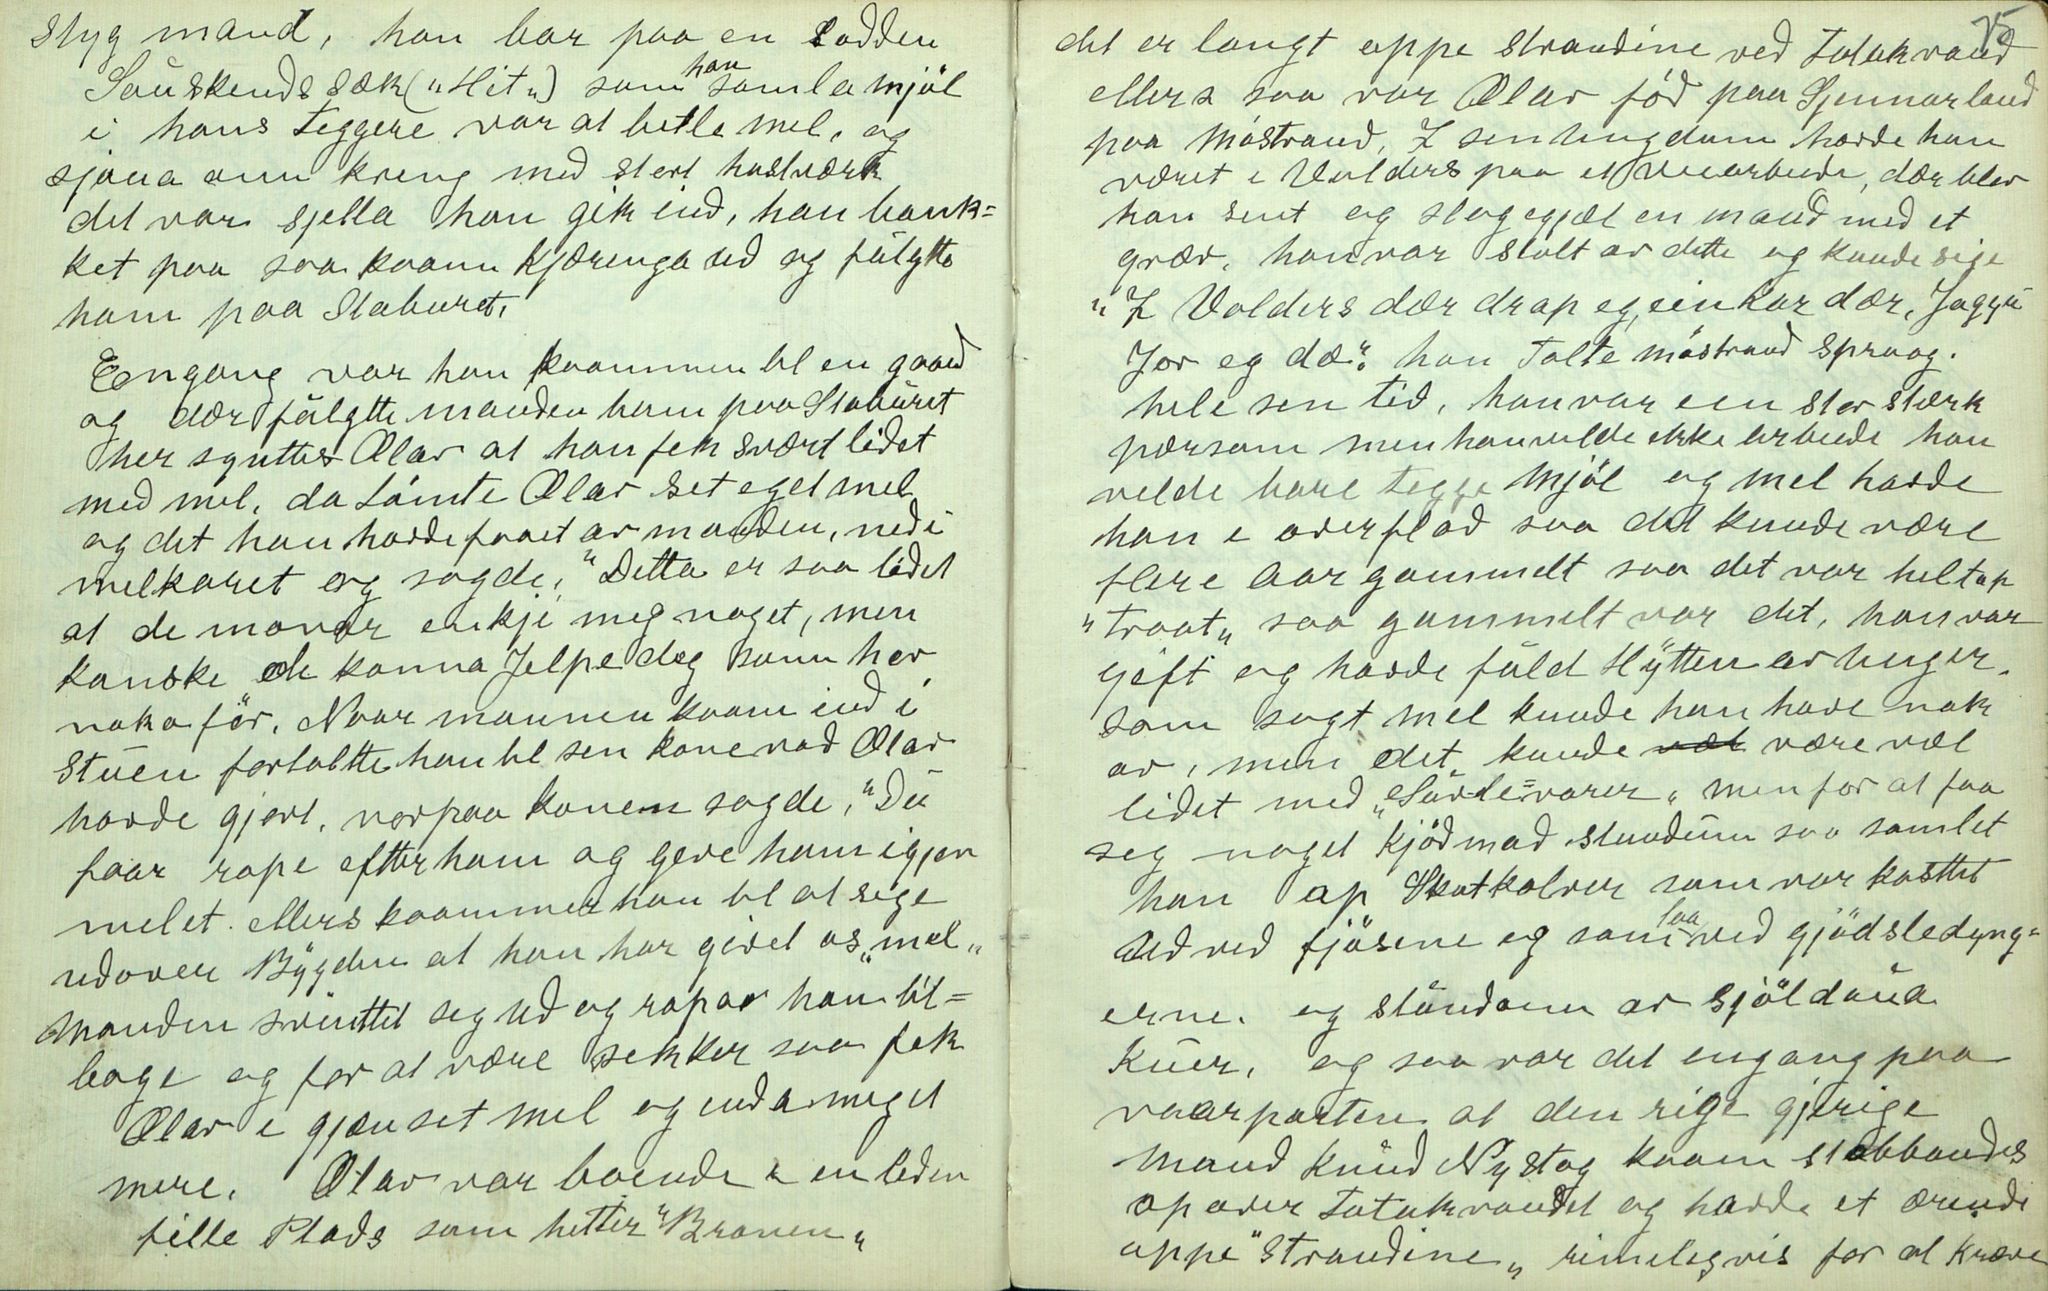 Styg mand, han bar paa en Lodden
Sauskends sæk („Hit„) som han samla mjøl
i hans teggere var at betle mel, og
sjaua omm kreng med stort hastværk
det var sjella han gik ind, han bank=
ket paa saa kaam kjæringa ud og fulgtte
ham paa Staburet,
Engang var han kaammen til en gaard
og dær fulgtte manden ham paa Staburet
her syntes Olav at han fek svært lidet
med mel, da tømte Olav set eget mel
og det han havde faaet av manden, ned i
melkaret og sagde, "Detta er saa lidet
at de monar enkje meg noget, men
kanske de kanna Jelpe deg somm her
noka før, Naar mannen kaam ind i
Stuen fortaltte han til sen kone vad Olav
havde gjort, vorpaa konem sagde, "Du
faar rope efter ham og geve ham igjen
melet. ellers kaammer han til at sege
udover Bygden at han har givet os „mel„
Manden svinttet seg ud og ropar han til=
bage og for at være sekker saa fek
Olav i gjæn set mel og enda meget
mere. Olav var boende i en leden
fille Plads som hetter "Braaen„
75
det er langt oppe strandine ved Totakvand
ellers saa var Olav fød paa Gjennarland
paa Møstrand, I sen ungdom havde han
været i Valders paa et veiarbeide, dær blev
han sent og slog egjæl en mand med et
græv, han var stolt av dette og kunde sige
"I Valders dær drap eg ein kar dær, Jaggu
Jor eg dæ". han Talte møstrand spraag.
hele sen tid, han var een stor stærk
pærsom men han vilde ikke arbeide han
velde bare tegge Mjøl og mel havde
han i overflod saa det kunde være
flere Aar gammelt saa det var heltop
„traat„ saa gammelt var det, han var
gift og havde fuld Hytten av unger.
som sagt mel kunde han have nok
av, men det kunde være væl
lidet med „Suvle=varer„ men for at faa
seg noget kjødmad stundum saa samlet
han op Skotkalver som var kasttet
ud ved fjøsene og som laa ved gjødsledyng=
erne. og stundom av sjøldaua
Kuer, og saa var det engang paa
vaarparten at den rige gjerige
mand Knud Nystog kaam stabbandes
op over Totakvandet og havde et ærende
oppe "Strandine„ rimeligvis for at kræve